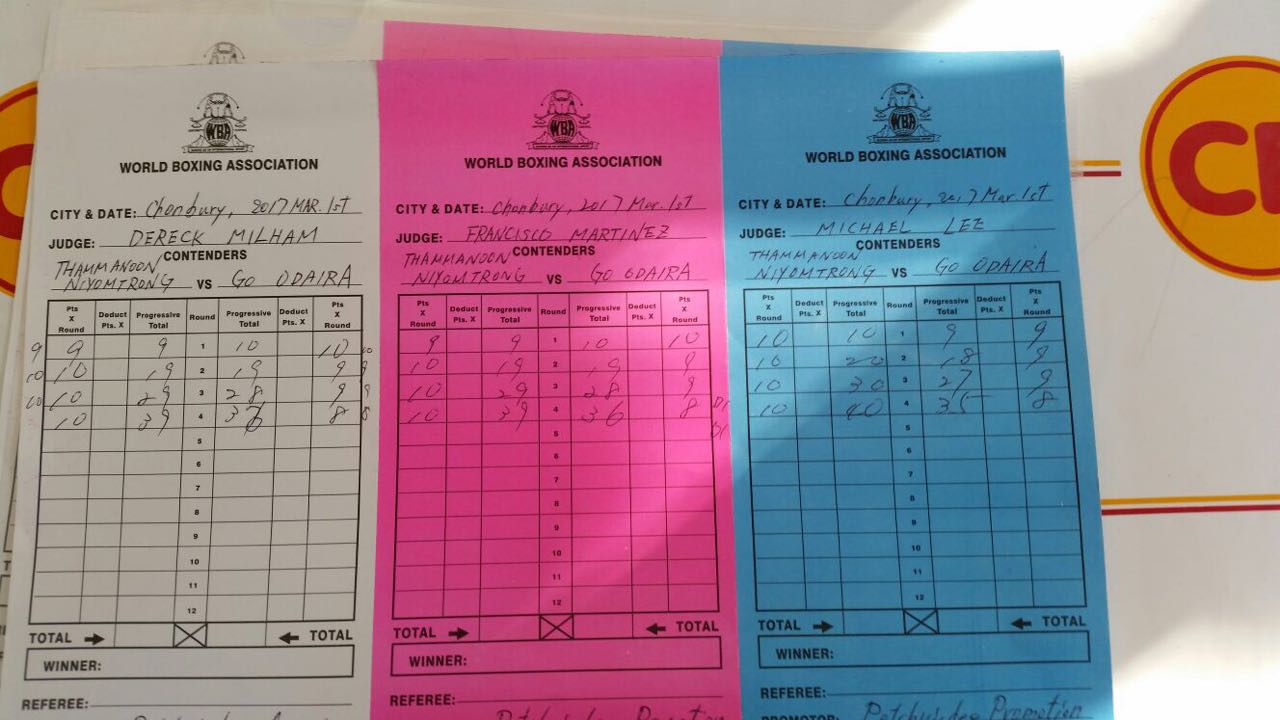 WBA
WORLD BOXING ASSOCIATION
CITY & DATE: Chonbury, 2017 MAR. 1st
JUDGE: DERECK MILHAM
CONTENDERS
THAMMANOON
NIYOMTRONG VS GO ODAIRA
Pts X Round Deduct Pts. X Progressive Total Round Progressive Total Deduct Pts. X Pts X Round
9 9 9 1 10 10 10
10 10 19 2 19 9 9
10 10 29 3 28 9 9
10 39 4 36 8 8
5
6
7
8
9
10
11
12
TOTAL TOTAL
WINNER:
REFEREE:
WBA
WORLD BOXING ASSOCIATION
CITY & DATE: Chonbury, 2017 Mar. 1st
JUDGE: FRANCISCO MARTINEZ
CONTENDERS
THAMMANOON
NIYOMTRONG VS GO ODAIRA
Pts X Round Deduct Pts. X Progressive Total Round Progressive Total Deduct Pts. X Pts X Round
9 9 1 10 10
10 19 2 19 9
10 29 3 28 9
10 39 4 36 8
5
6
7
8
9
10
11
12
TOTAL TOTAL
WINNER:
REFEREE:
WBA
WORLD BOXING ASSOCIATION
CITY & DATE: Chonbury, 2017 Mar. 1st
JUDGE: MICHAEL LEE
CONTENDERS
THAMMANOON
NIYOMTRONG VS GO ODAIRA
Pts X Round Deduct Pts. X Progressive Total Round Progressive Total Deduct Pts. X Pts X Round
10 10 1 9 9
10 20 2 18 9
10 30 3 27 9
10 40 4 35 8
5
6
7
8
9
10
11
12
TOTAL TOTAL
WINNER:
REFEREE:
PROMOTER: Promotion